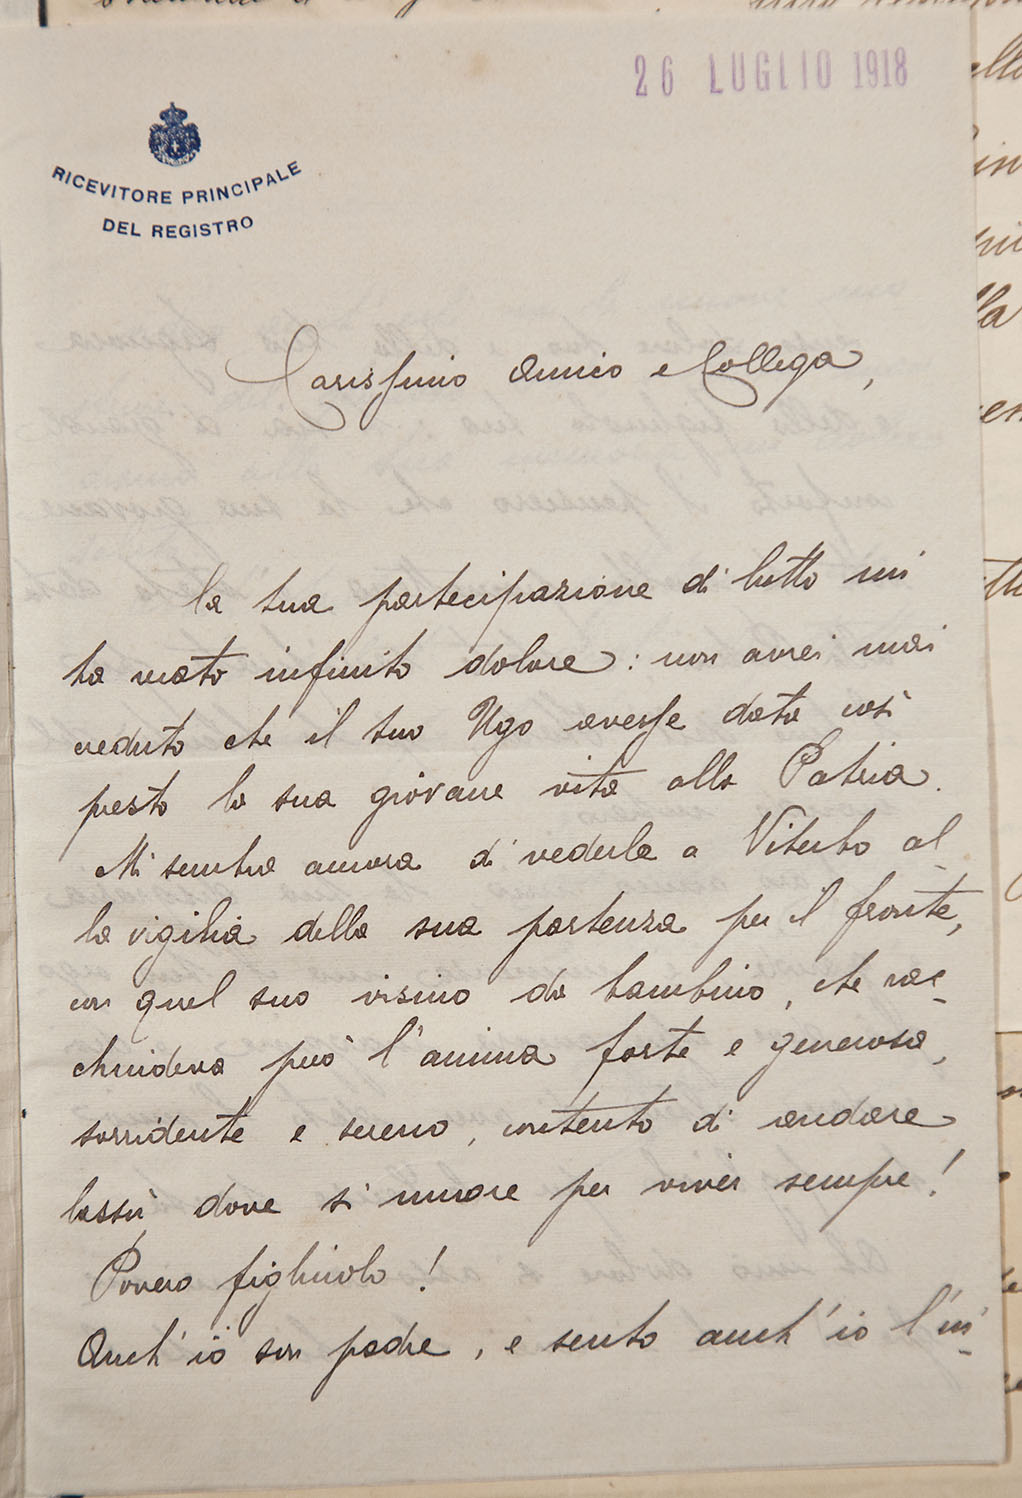 26 LUGLIO 1918
RICEVITORE PRINCIPALE
DEL REGISTRO
Carissimo Amico e Collega,
la tua partecipazione di lutto mi
ha recato infinito dolore: non avrei mai
creduto che il tuo Ugo avesse data così
presto la sua giovane vita alla Patria.
Mi sembra ancora di vederlo a Viterbo al-
la vigilia della sua partenza per il fronte,
con quel suo visino da bambino, che rac-
chiudeva però l'anima forte e generosa,
sorridente e sereno, contento di andare
lassù, dove si muore per viver sempre!
Povero figliuolo!
Anch'io son padre, e sento anch'io l'in-